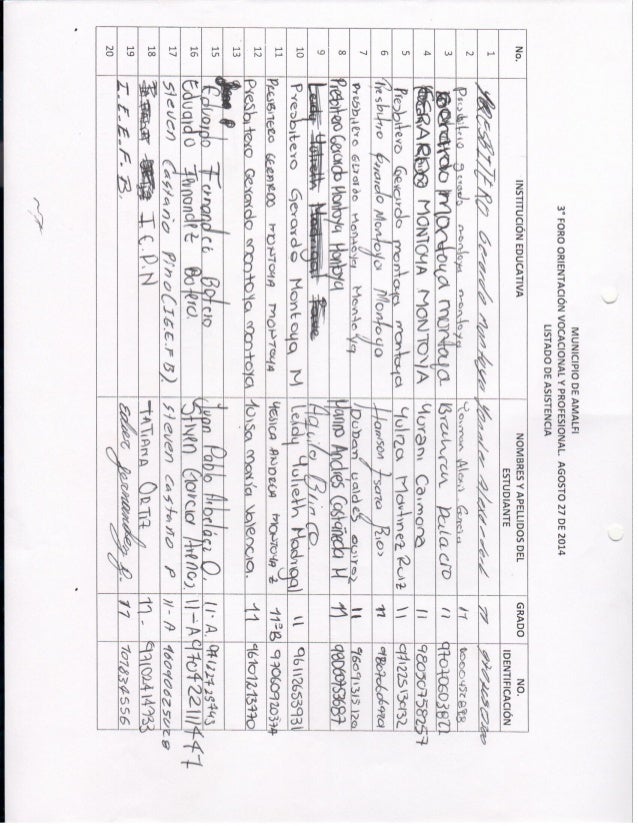 MUNICIPIO DE AMALFI
3° FORO ORIENTACIÓN VOCACIONAL Y PROFESIONAL. AGOSTO 27 DE 2014
LISTADO DE ASISTENCIA
No. INSTITUCIÓN EDUCATIVA NOMBRES Y APELLIDOS DEL ESTUDIANTE GRADO NO. IDENTIFICACIÓN
1 PRESBITERO Gerardo montoya 11
2 Presbitero gerardo montoya montoya Yeirman Alexis Garcia 11
3 Gerardo montoya montoya Brahian palacio 11
4 GERARDO MONTOYA MONTOYA Yurani Carmona 11 98030758257
5 Presbitero Gerardo montoya montoya Yuliza Martinez Ruiz 11 97122513032
6 Presbitero Gerardo Montoya Montoya Rios 11
7 Presbitero Gerardo Montoya Montoya Duban valdes 11 96091313120
8 Presbitero Gerardo Montoya Montoya Andres Castañeda M 11 98060753687
9
10 Presbitero Gerardo Montoya M Leidy Yulieth Madrigal 11 96112653931
11 PRESBITERO GERARDO MONTOYA MONTOYA YESICA ANDREA MONTOYA Z 11°B 97060920374
12 Presbitero Gerardo montoya montoya Luisa maría valencia. 11 96101213770
13
15 Eduardo Fernandez Botero Juan Pablo O. 11. A. 97122723443
16 Eduardo Fernandez Botero Stiven Garcia Arenas 11-A 97042211447
17 Steven Castaño Pino (I.G.E.F.B). Steven Castaño P 11-A 96090625028
18 I.C.P.N TATIANA ORTIZ 11- 97102414933
19 I.E.E.F.B. 11 1078334556
20